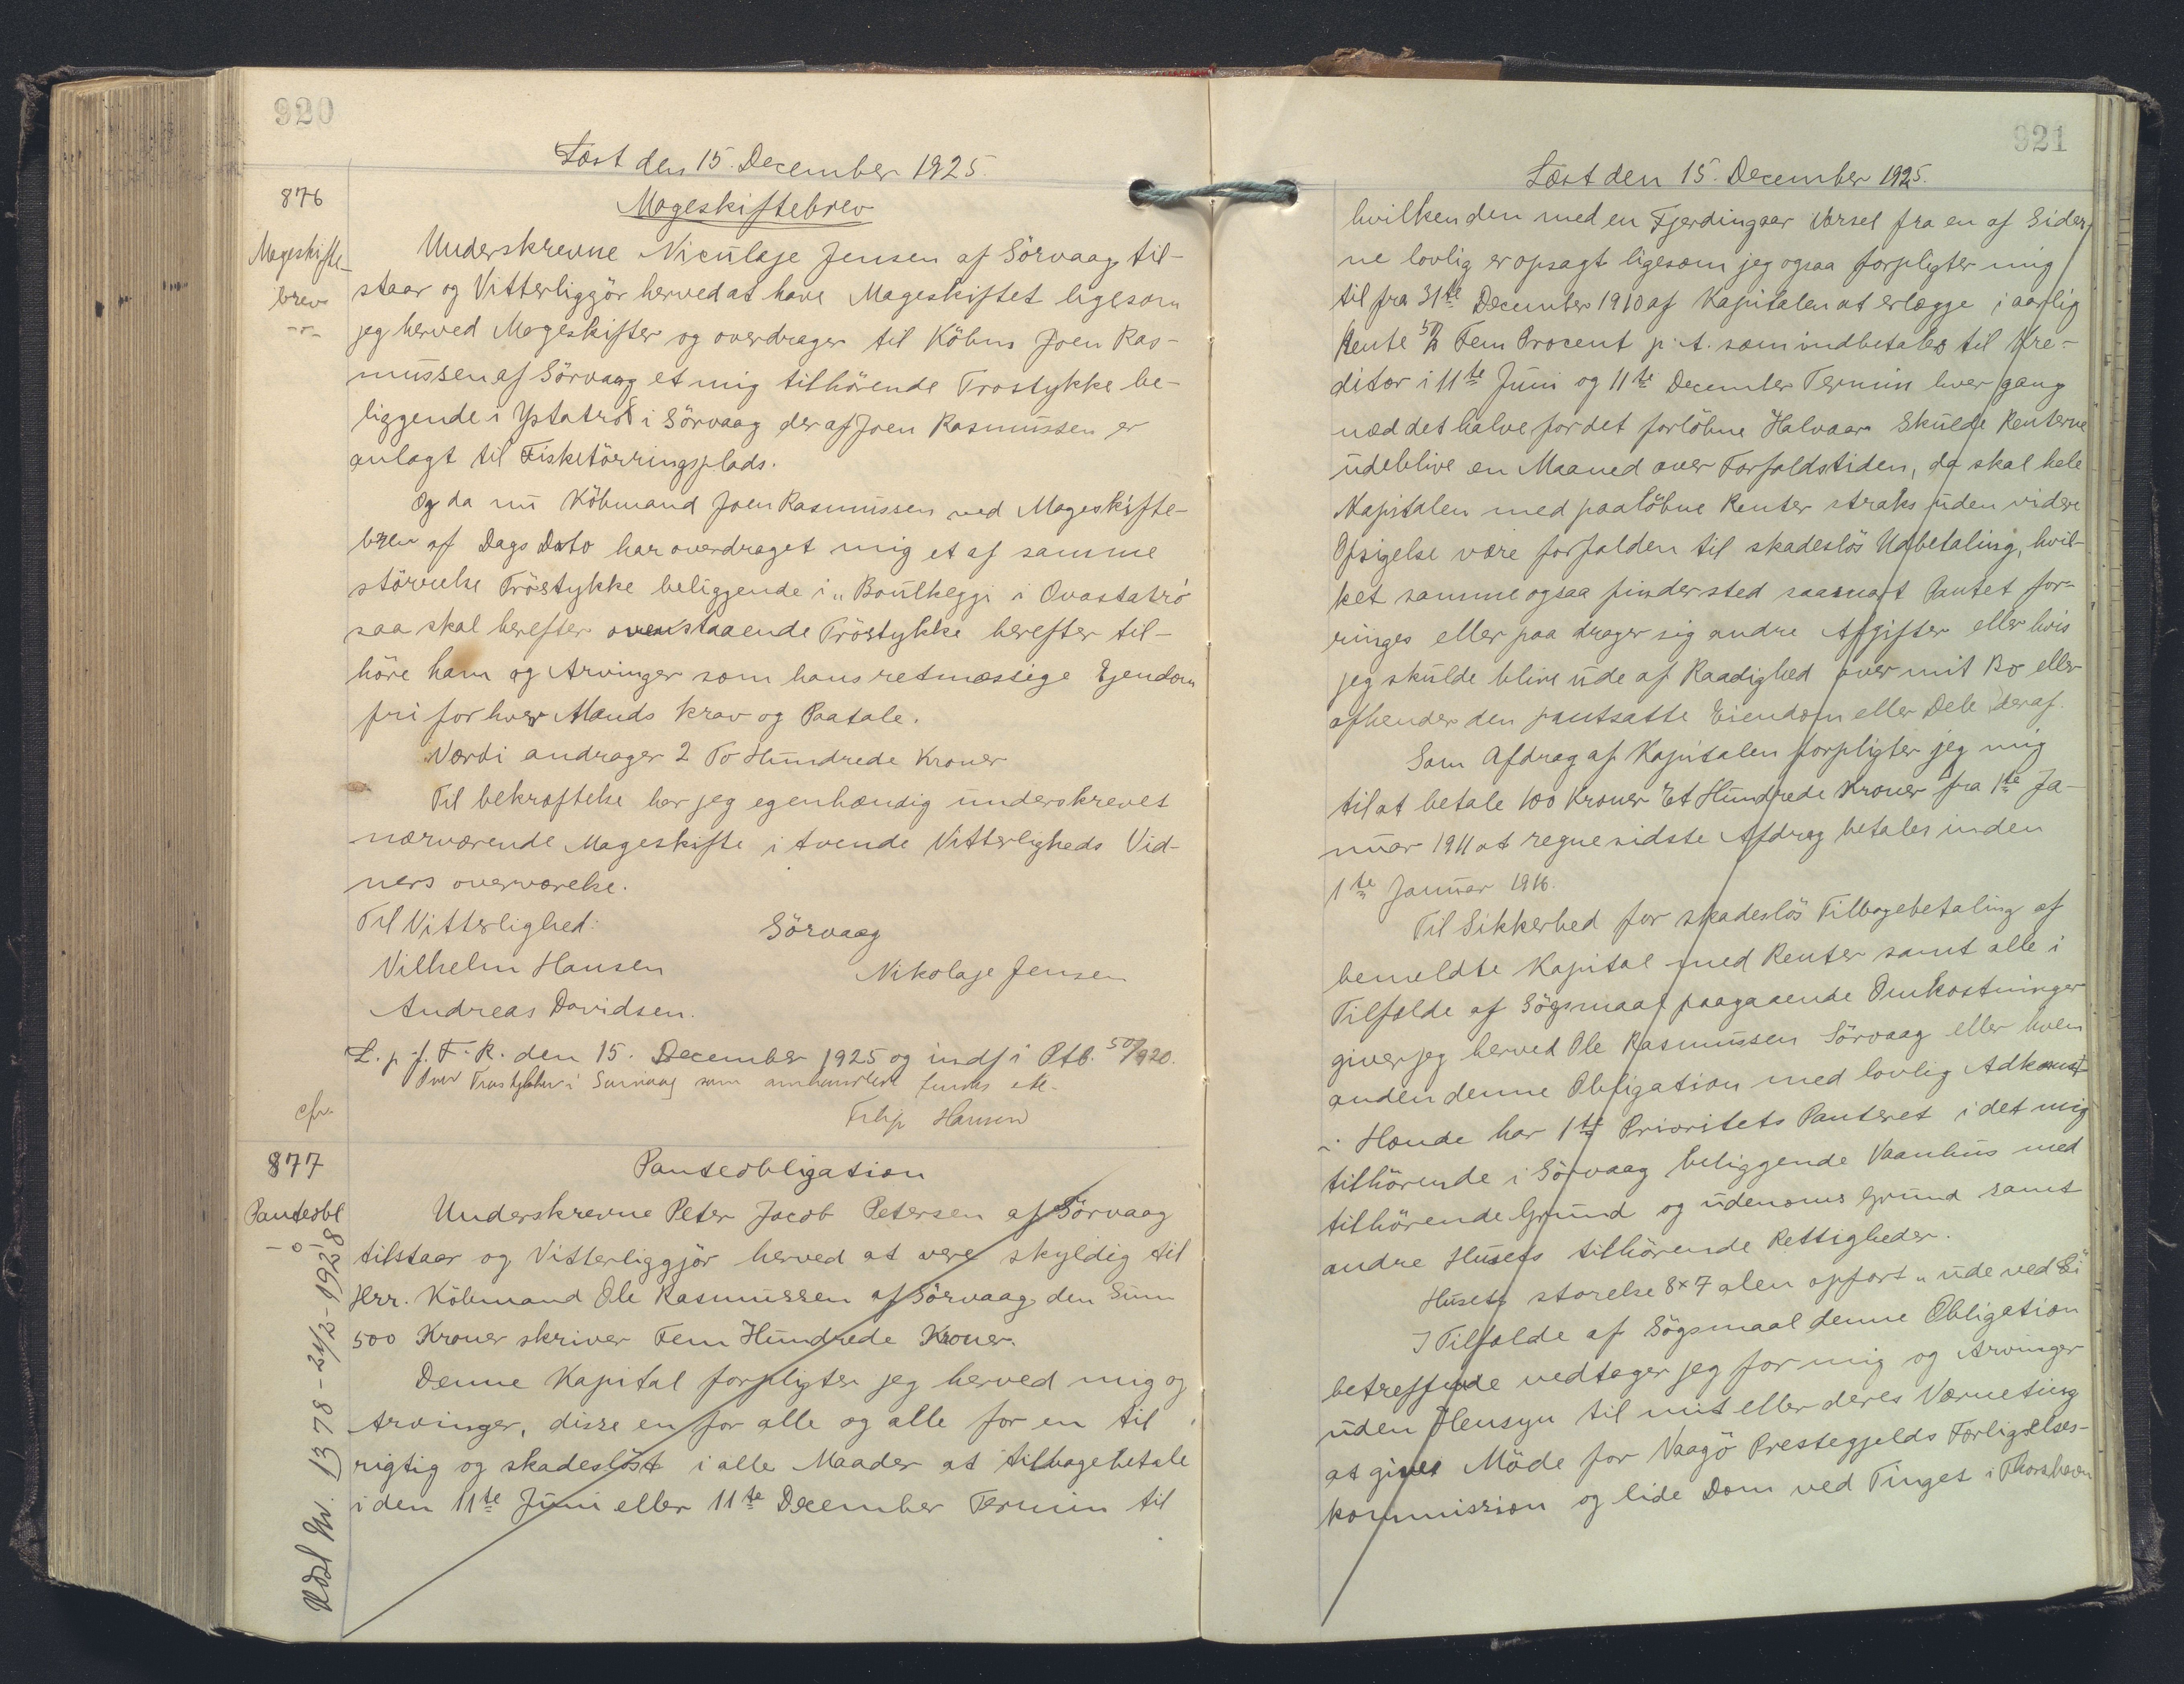 920
Læst den 15. December 1925.
876
Mageskiftebrev
Mageskifte-
brev
Underskrevne Niculaje Jensen af Sörvaag til-
staar og Vitterliggjör herved at have Mageskiftet ligesom
jeg herved Mageskifter og overdrager til Köbm Joen Ras-
mussen af Sörvaag et mig tilhörende Trostykke be-
liggende i Ystatröð i Sörvaag der af Joen Rasmussen er
anlagt til Fisketörringsplads.
Og da nu Köbmand Joen Rasmussen ved Mageskifte-
brev af Dags Dato har overdraget mig et af samme
störrelse Tröstykke beliggende i "Boulheggi i Ovastatró
saa skal herefter ovenstaaende Tröstykke herefter til-
höre ham og Arvinger som hans retmæssige Ejendom
fri for hver Mands Krav og Paatale.
Værdi andrager 2 To Hundrede Kroner
Til bekræftelse har jeg egenhændig underskrevet
nærværende Mageskifte i tvende Vitterligheds Vid-
ners overværelse.
Til Vitterlighed:
Sörvaag
Vilhelm Hansen
Nikolaje Jensen
Andreas Davidsen.
L. p. f. F. R. den 15. December 1925 og indf i Ptb. 50/920.
cfr.
Filip Hansen
877
Panteobligation
Panteobl
-o-
Underskrevne Peter Jacob Petersen af Sörvaag
tilstaar og Vitterliggjör herved at være skyldig til
Hrr. Köbmand Ole Rasmussen af Sörvaag den Sum
500 Kroner skriver Fem Hundrede Kroner.
Denne Kapital forpligter jeg herved mig og
Arvinger, disse en for alle og alle for en til
rigtig og skadeslöst i alle Maader at tilbagebetale
i den 11te Juni eller 11te December Termin til
Udsl Nr. 1378 - 24/2 - 1928
921
Læst den 15. December 1925.
hvilken den med en Fjerdingaar Varsel fra en af Sider
ne lovlig er opsagt ligesom jeg ogsaa forpligter mig
til fra 31te December 1910 af Kapitalen at erlægge i aarlig
Rente 5% Fem Procent p. A. som indbetales til Kre-
ditor i 11te Juni og 11te December Termin hver gang
med det halve for det forlöbne Halvaar Skulde Renterne
udeblive en Maaned over Forfaldstiden, da skal hele
Kapitalen med paalöbne Renter straks uden videre
Opsigelse være forfalden til skadeslös Udbetaling, hvil-
ket samme ogsaa finder sted saasnart Pantet for-
ringes eller paa drager sig andre Afgifter eller hvis
jeg skulde blive ude af Raadighed over mit Bo eller
afhender den pantsatte Eiendom eller Dele deraf.
Som Afdrag af Kapitalen forpligter jeg mig
til at betale 100 Kroner Et Hundrede Kroner fra 1te Ja-
nuar 1911 at regne sidste Afdrag betales inden
1te Januar 1916.
Til Sikkerhed for skadeslös Tilbagebetaling af
bemeldte Kapital med Renter samt alle i
Tilfælde af Sögsmaal paagaaende Omkostninger
giver jeg herved Ole Rasmussen Sörvaag eller hvem
anden denne Obligation med lovlig Adkomst
i Hænde har 1te Prioritets Panteret i det mig
tilhörende i Sörvaag beliggende Vaanhus med
tilhörende Grund og udenoms Grund samt
andre Husets tilhörende Rettigheder.
Husets storelse 8x7 alen opfört "ude ved Ei"
I Tilfælde af Sögsmaal denne Obligation
betreffende vedtager jeg for mig og Arvinger
uden Hensyn til mit eller deres Værneting
at give Möde for Vaagö Prestegjelds Forligelses-
kommission og lide Dom ved Tinget i Thorshavn